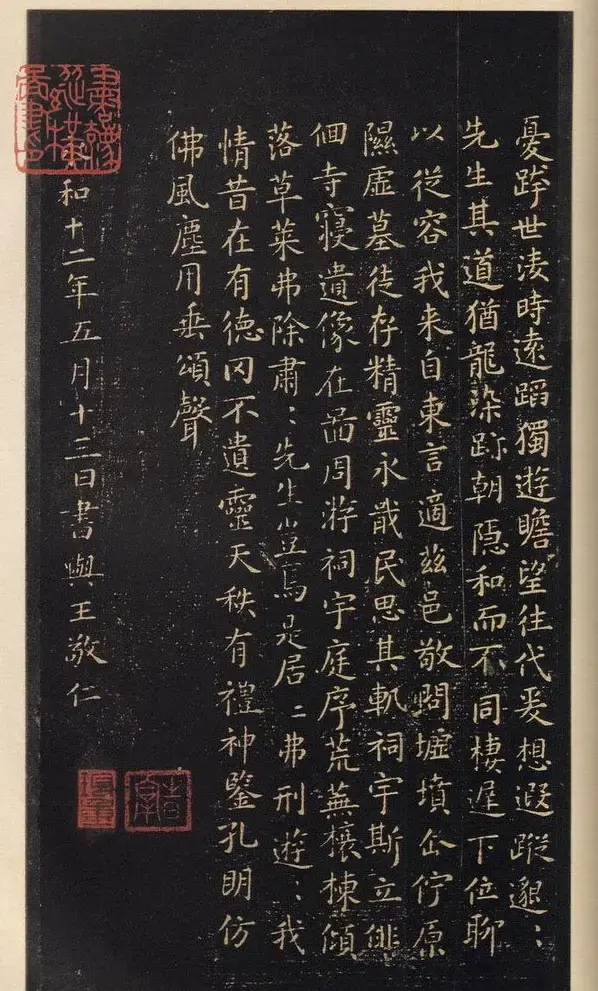 憂跨世淩時遠蹈獨遊瞻望往代爰想遐蹤邈〻
先生其道猶龍染跡朝隱和而不同棲遲下位聊
以從容我来自東言適茲邑敬問墟墳企佇原
隰虛墓徒存精靈永戢民思其軌祠宇斯立俳
佪寺寢遺像在啚周游祠宇庭序荒蕪榱棟傾
落草莱弗除肅〻先生豈焉是居〻弗刑遊〻我
情昔在有德罔不遺靈天秩有禮神鑒孔明仿
佛風塵用垂頌聲
永和十二年五月十三日書與王敬仁